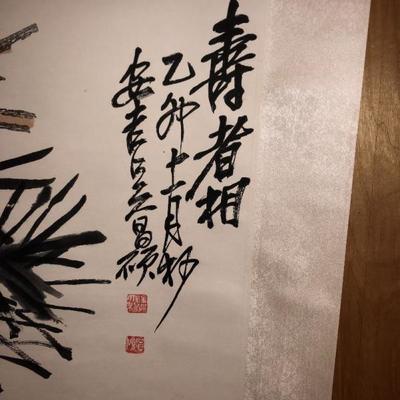 壽者相
乙卯十一月杪
安吉吳昌碩